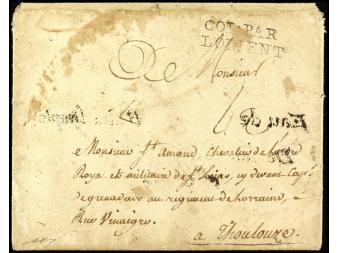 COL. PAR
LORIENT
De Monsieur
a Monsieur St Amand, Chevalier de l'ordre
Royal et militaire de St Louis, cy devant Cap.
de grenadiers au regiment de Lorraine,
Rue Vinaigre.
a Thoulouze.